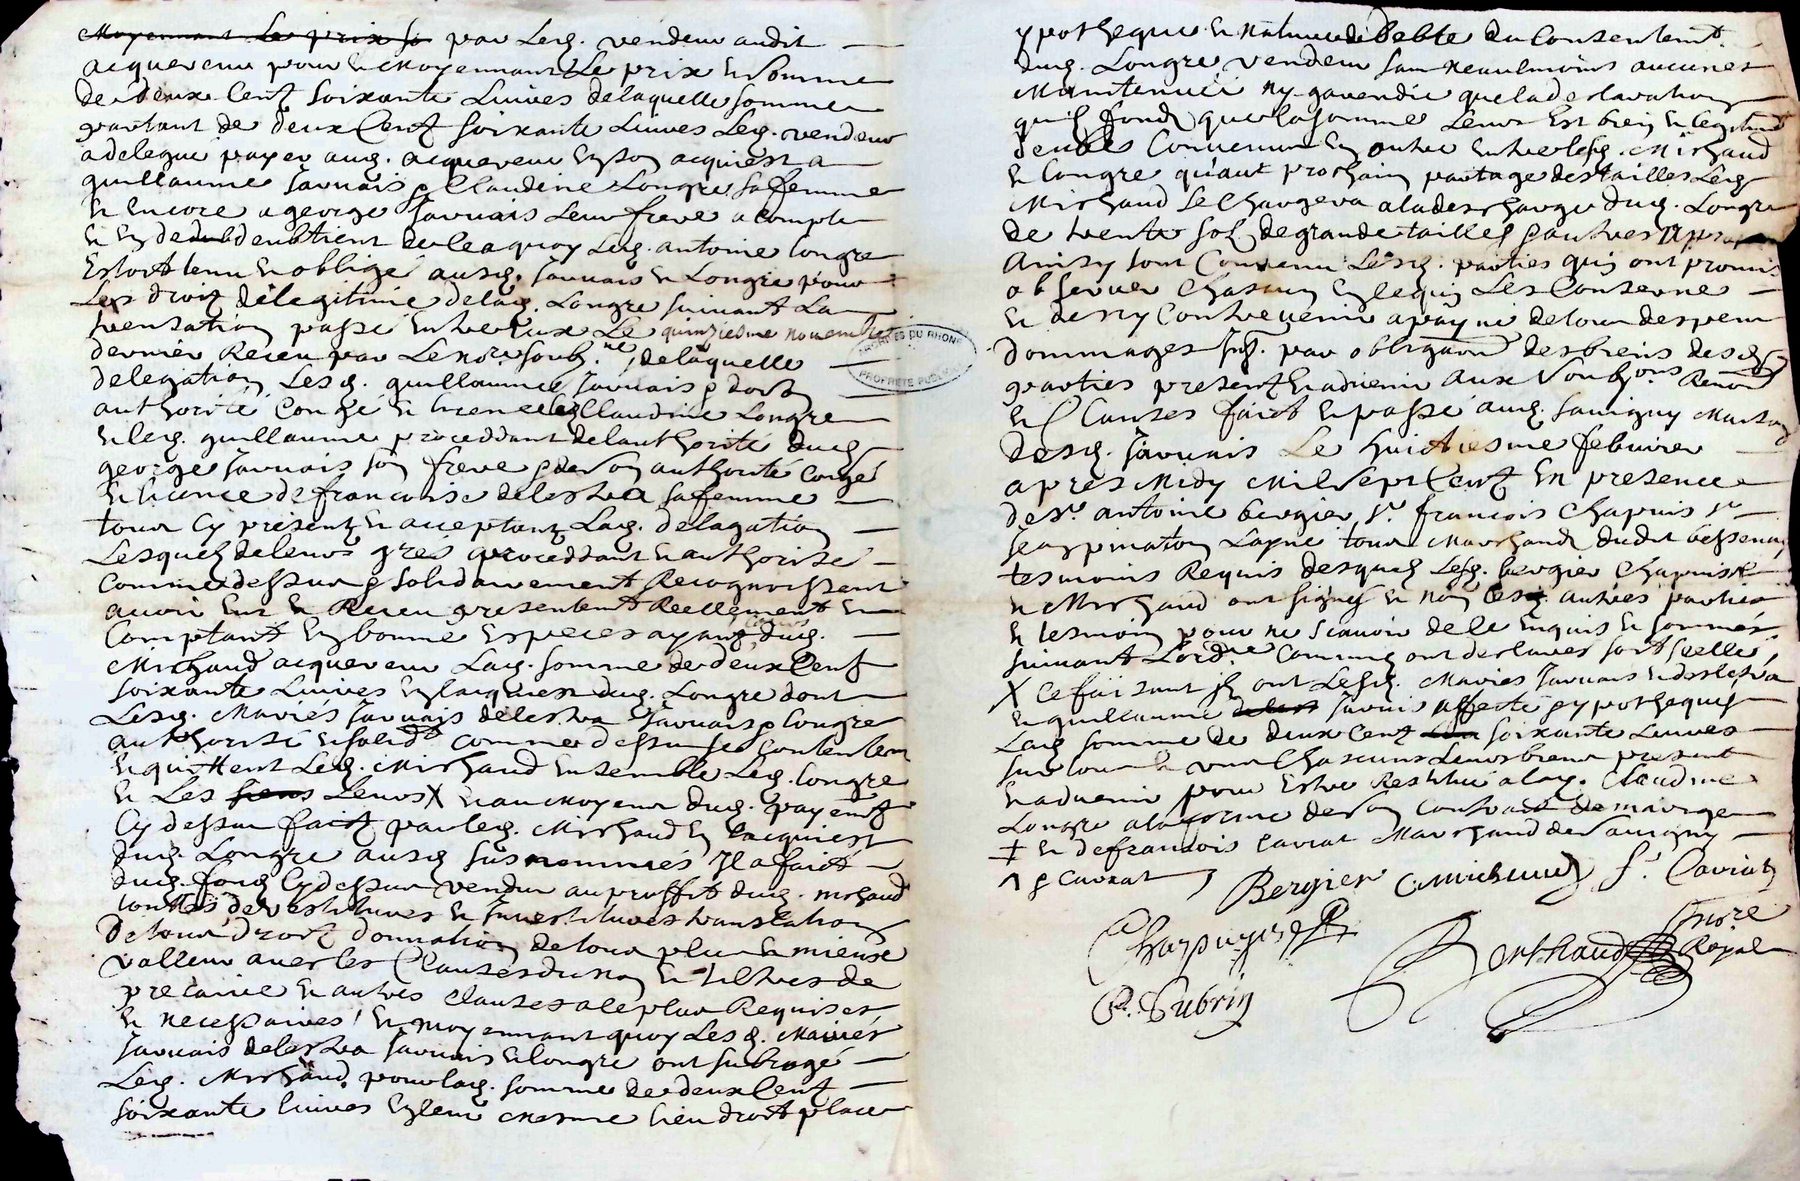 Moyennant Le prix so par Lesq. vendeur audit
acquereur pour & Moyennant Le prix & somme
de deux Cent soixante Livres de laquelle somme
partant de deux Cent soixante Livres Leq. vendeur
a delegué payer auq. acquereur acquiest a
guillaume Jarvais & Claudine Longre sa femme
& encore a george Jarvais Leur frere a compte
de quoy Leq. antoine longre
Estoit tenu & obligé ausq. Jarvais & Longre pour
Les droitz de legitime de laq. Longre suivant La
transation passé entre eux Le quinziesme novembre
dernier Receu par Le no.re soub.né de laquelle
delegation Lesq. guillaume Jarvais & dort
authorité Congé & licence Claudine Longre
& leq. guillaume proceddant de lauthorité duq.
george Jarvais son frere & de son authorité Congé
& licence de francoise delestra sa femme
tous Cy presentz & acceptantz Laq. delagation
Lesquelz de leurs grés proceddant & authorisé
Comme dessus & solidairement Recognoissent
avoir eut & Receu presentemt Reellement &
Comptant en bonne Especes ayans Cours duq.
Michaud acquereur Laq. somme de deux Cent
soixante Livres en lacquiest duq. Longre dont
Lesq. Mariés Jarvais delestra Jarvais & Longre
authorisé & solid.t Comme dessus se Contentent
& quittent Leq. Michaud ensemble Leq. Longre
& Les siens Leurs X & au Moyens duq. payemt
Cy dessus faict par leq. Michaud en lacquiest
duq. Longre ausq. susnommés Il a faict
duq. fond Cy dessus vendu au proffit duq. michaud
touttes devestitures & Investitures translation
de tous droit donnation de tous plus & mieux
valleur avec les Clauses du non & tiltres de
precaire & autres clauses a le plus Requises
& necessaires & moyennant quoy Lesq. Mariés
Jarvais delestra Jarvais & longre ont subrogé
Leq. Michaud pour laq. somme de deux Cent
soixante livres en leur mesme lieu droit place
ypotheque & Nature de Debte du Consentemt.
duq. Longre vendeur sans neaulmoins aucunes
Maintenuë ny garendie que la declaration
quilz fond que la somme Leur Est bien & legitimt
deubës Convenu En outre Entre lesq. Michaud
& Longre qu'aux prochain partage des tailles Leq.
Michaud se Chargera a la descharge duq. Longre
de trente sols de grande tailles & autres
Ainsy sont Convenu Lesq. parties qui ont promis
observer Chascun En lequi Les Conserne
& de ny Contrevenir a payne de tous despens
dommages Int. par obligaon des biens desq.
parties present & advenir aux Soub.ons Renon
& Clauses faict & passé auq. Savigny Maison
desq. Jarvais Le huictiesme febvrier
apres Midy Mil Sept Cent En presence
de sr. antoine bergier sr. francois Chapuis sr.
Jean pinaton Layné tous Marchand dudit bessenay
tesmoins Requis desquelz Lesq. bergier Chapuis
& Michaud ont signés & non lesq. autres parties
& tesmoin pour ne scavoir de le Enquis & sommés
suivant Lord.ce Comme ont declarer soit scellé
X Ce faisant ont Lesq. Mariés Jarvais & delestra
& guillaume Jarvais affecté & ypothequés
Laq. somme de deux Cent soixante Livres
sur tous & un Chascuns Leurs biens present
& advenir pour Estre Restitué a laq. Claudine
Longre a la forme de son Contract de mariage
‡ & de francois Cavrat Marchand de Savigny
& Cavrat
Bergier Michaud f. Cavrat
Chapuys
Gonthaud no.re Royal
Subrin